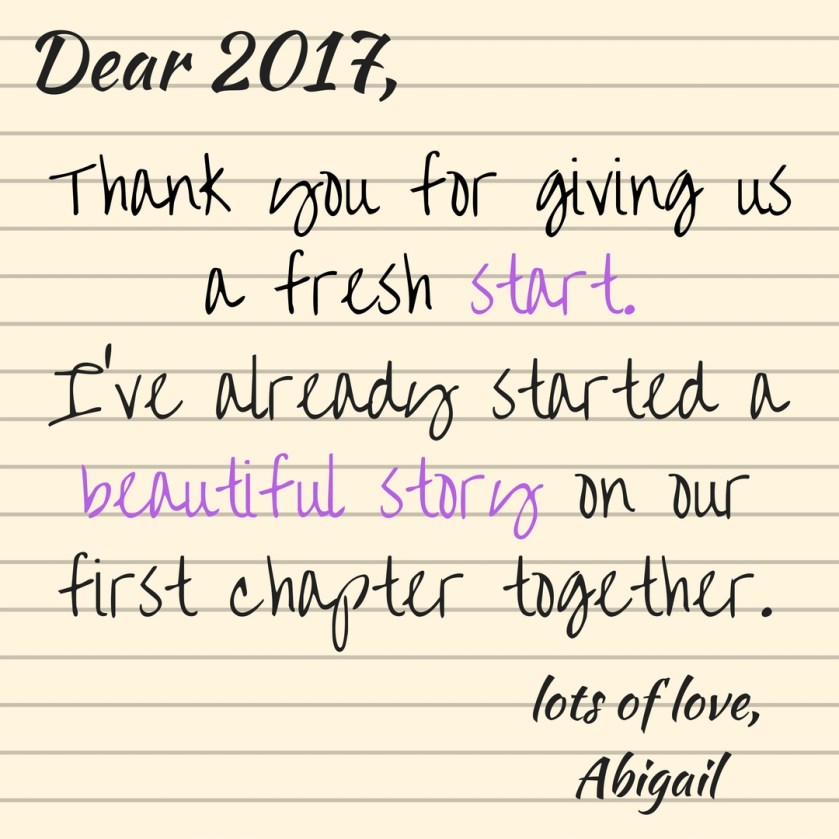 Dear 2017,
Thank you for giving us
a fresh start.
I've already started a
beautiful story on our
first chapter together.
lots of love,
Abigail